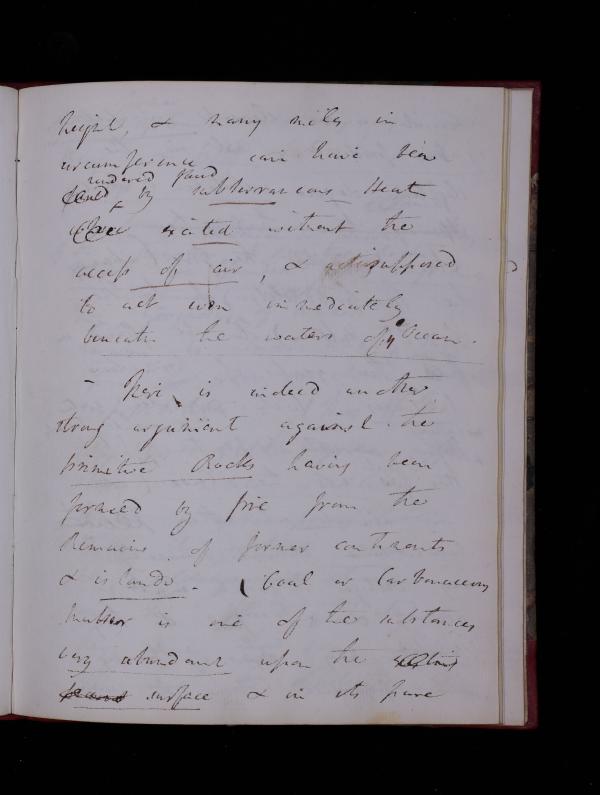 height, & many miles in
circumference can have been
rendered fluid
by subterraneous Heat
excited without the
access of air, & supposed
to act even immediately
beneath the waters of y Ocean.
- There is indeed another
strong argument against the
primitive Rocks having been
formed by fire from the
Remains of former continents
& islands. Coal or Carbonaceous
matter is one of the substances
very abundant upon the
surface & in its pure